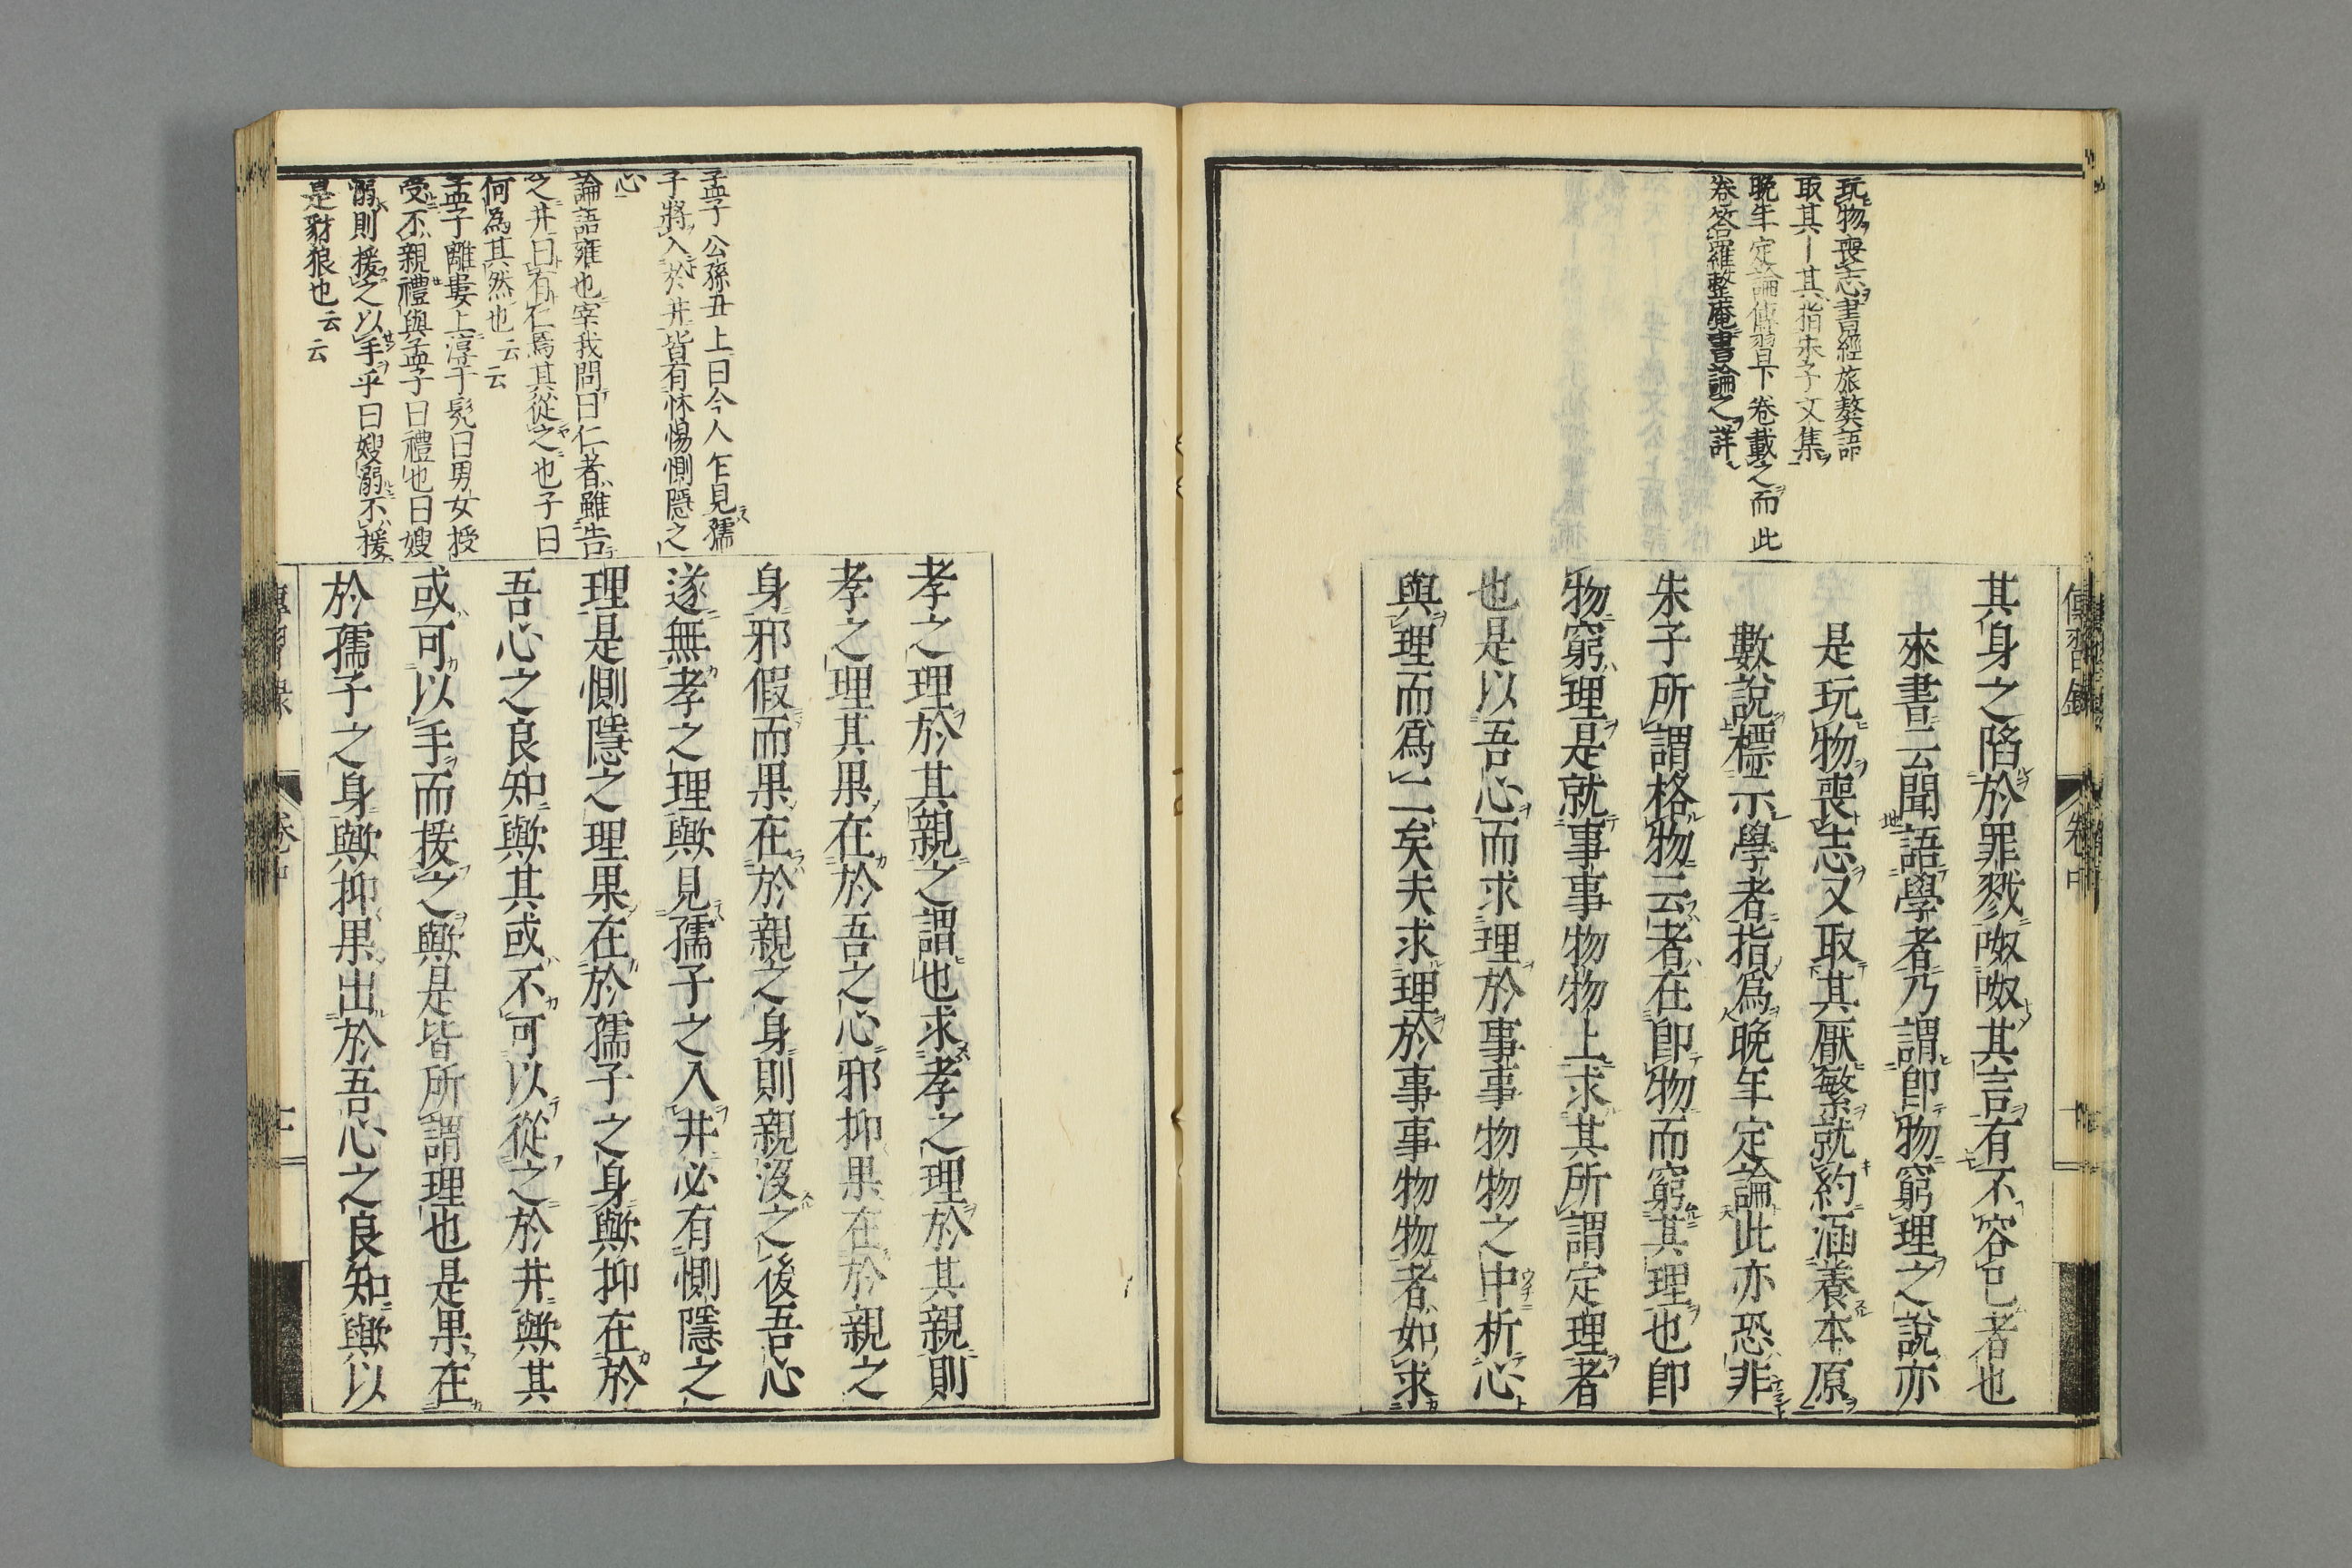 傳習錄
卷中
玩物喪志書經旅獒語
取其〡其指朱子文集
晚年定論傳習下卷載之而此
卷答羅整庵書論之詳
其身之陷於罪戮呶呶其言有不容已者也
來書云聞語學者乃謂卽物窮理之說亦
是玩物喪志又取其厭繁就約涵養本原
數說標示學者指爲晚年定論此亦恐非
朱子所謂格物云者在卽物而窮其理也卽
物窮理是就事事物物上求其所謂定理者
也是以吾心而求理於事事物物之中析心
與理而爲二矣夫求理於事事物物者如求
孟子公孫丑上曰今人乍見孺
子將入於井皆有怵惕惻隱之
心
論語雍也宰我問曰仁者雖告
之井曰有仁焉其從之也子曰
何為其然也云云
孟子離婁上淳于髡曰男女授
受不親禮與孟子曰禮也曰嫂
溺則援之以手乎曰嫂溺不援
是豺狼也云云
孝之理於其親之謂也求孝之理於其親則
孝之理其果在於吾之心邪抑果在於親之
身邪假而果在於親之身則親沒之後吾心
遂無孝之理歟見孺子之入井必有惻隱之
理是惻隱之理果在於孺子之身歟抑在於
吾心之良知歟其或不可以從之於井歟其
或可以手而援之歟是皆所謂理也是果在
於孺子之身歟抑果出於吾心之良知歟以